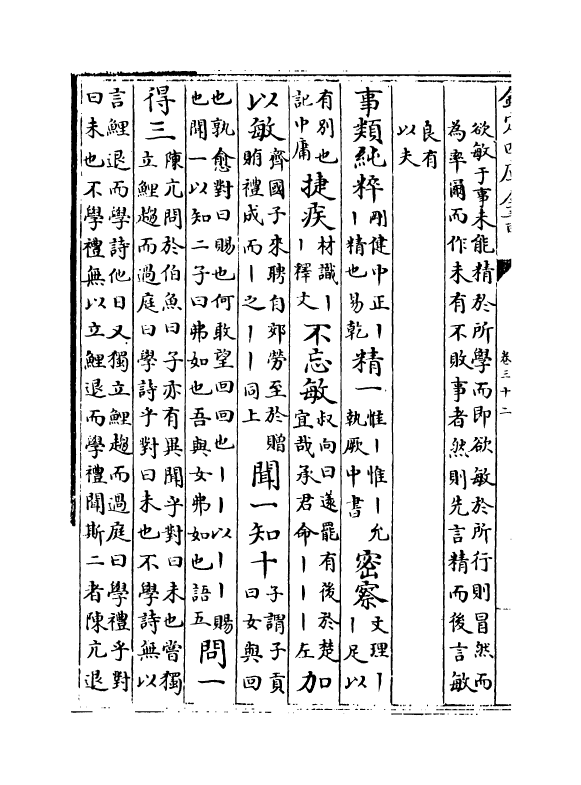 欽定四庫全書
卷三十二
欲敏于事未能精於所學而即欲敏於所行則冒然而
為率爾而作未有不敗事者然則先言精而後言敏
良有
以夫
事類純粹 剛健中正丨丨精也易乾 精一 惟丨惟丨允執厥中書 密察 文理丨丨足以
有別也記中庸 捷疾 材識丨丨釋文 不忘敏 叔向曰薳罷有後於楚宜哉承君命丨丨丨左 加
以敏 齊國子來聘自郊勞至於贈賄禮成而丨之丨丨同上 聞一知十 子謂子貢曰女與回
也孰愈對曰賜也何敢望回回也丨丨以丨丨賜也聞一以知二子曰弗如也吾與女弗如也語五 問一
得三 陳亢問於伯魚曰子亦有異聞乎對曰未也嘗獨立鯉趨而過庭曰學詩乎對曰未也不學詩無以
言鯉退而學詩他日又獨立鯉趨而過庭曰學禮乎對
曰未也不學禮無以立鯉退而學禮聞斯二者陳亢退